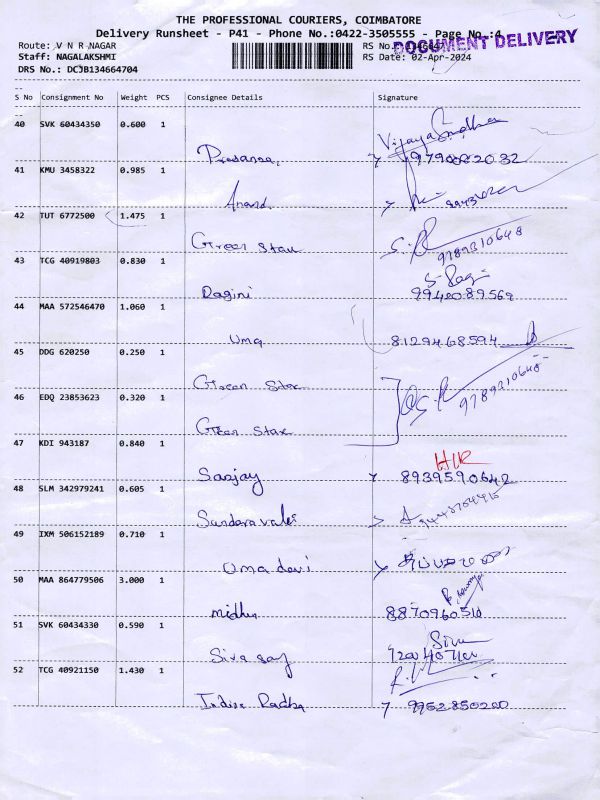 THE PROFESSIONAL COURIERS, COIMBATORE
Delivery Runsheet - P41 - Phone No.:0422-3505555 - Page No.:4
DOCUMENT DELIVERY
Route: V N R NAGAR
RS No.:
Staff: NAGALAKSHMI
RS Date: 02-Apr-2024
DRS No.: DCJB134664704
S No Consignment No Weight PCS Consignee Details Signature
40 SVK 60434350 0.600 1
Prasanna
41 KMU 3458322 0.985 1
Anand
42 TUT 6772500 1.475 1
Green Star
9789310648
43 TCG 40919803 0.830 1
S. Ragi
Ragini 9940089569
44 MAA 572546470 1.060 1
Uma 8129468594
45 DDG 620250 0.250 1
Green Star
9789310648
46 EDQ 23853623 0.320 1
Green Star
47 KDI 943187 0.840 1
Sanjay 8939590642
48 SLM 342979241 0.605 1
49 IXM 506152189 0.710 1
Uma devi
50 MAA 864779506 3.000 1
midhu 8870960510
51 SVK 60434330 0.590 1
Siva
52 TCG 40921150 1.430 1
9962850200